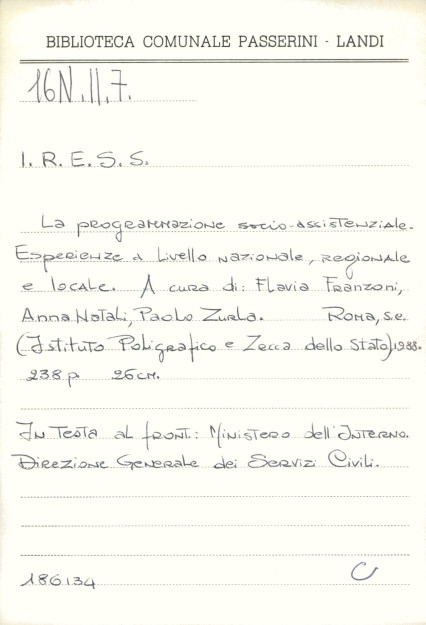 BIBLIOTECA COMUNALE PASSERINI - LANDI
16N.II.7.
I. R. E. S. S.
La programmazione socio-assistenziale.
Esperienze a livello nazionale, regionale
e locale. A cura di: Flavia Franzoni,
Anna Natali, Paolo Zurla. Roma, s.e.
(Istituto Poligrafico e Zecca dello Stato), 1988.
238 p. 26 cm.
In testa al front.: Ministero dell'Interno.
Direzione Generale dei Servizi Civili.
186134 C